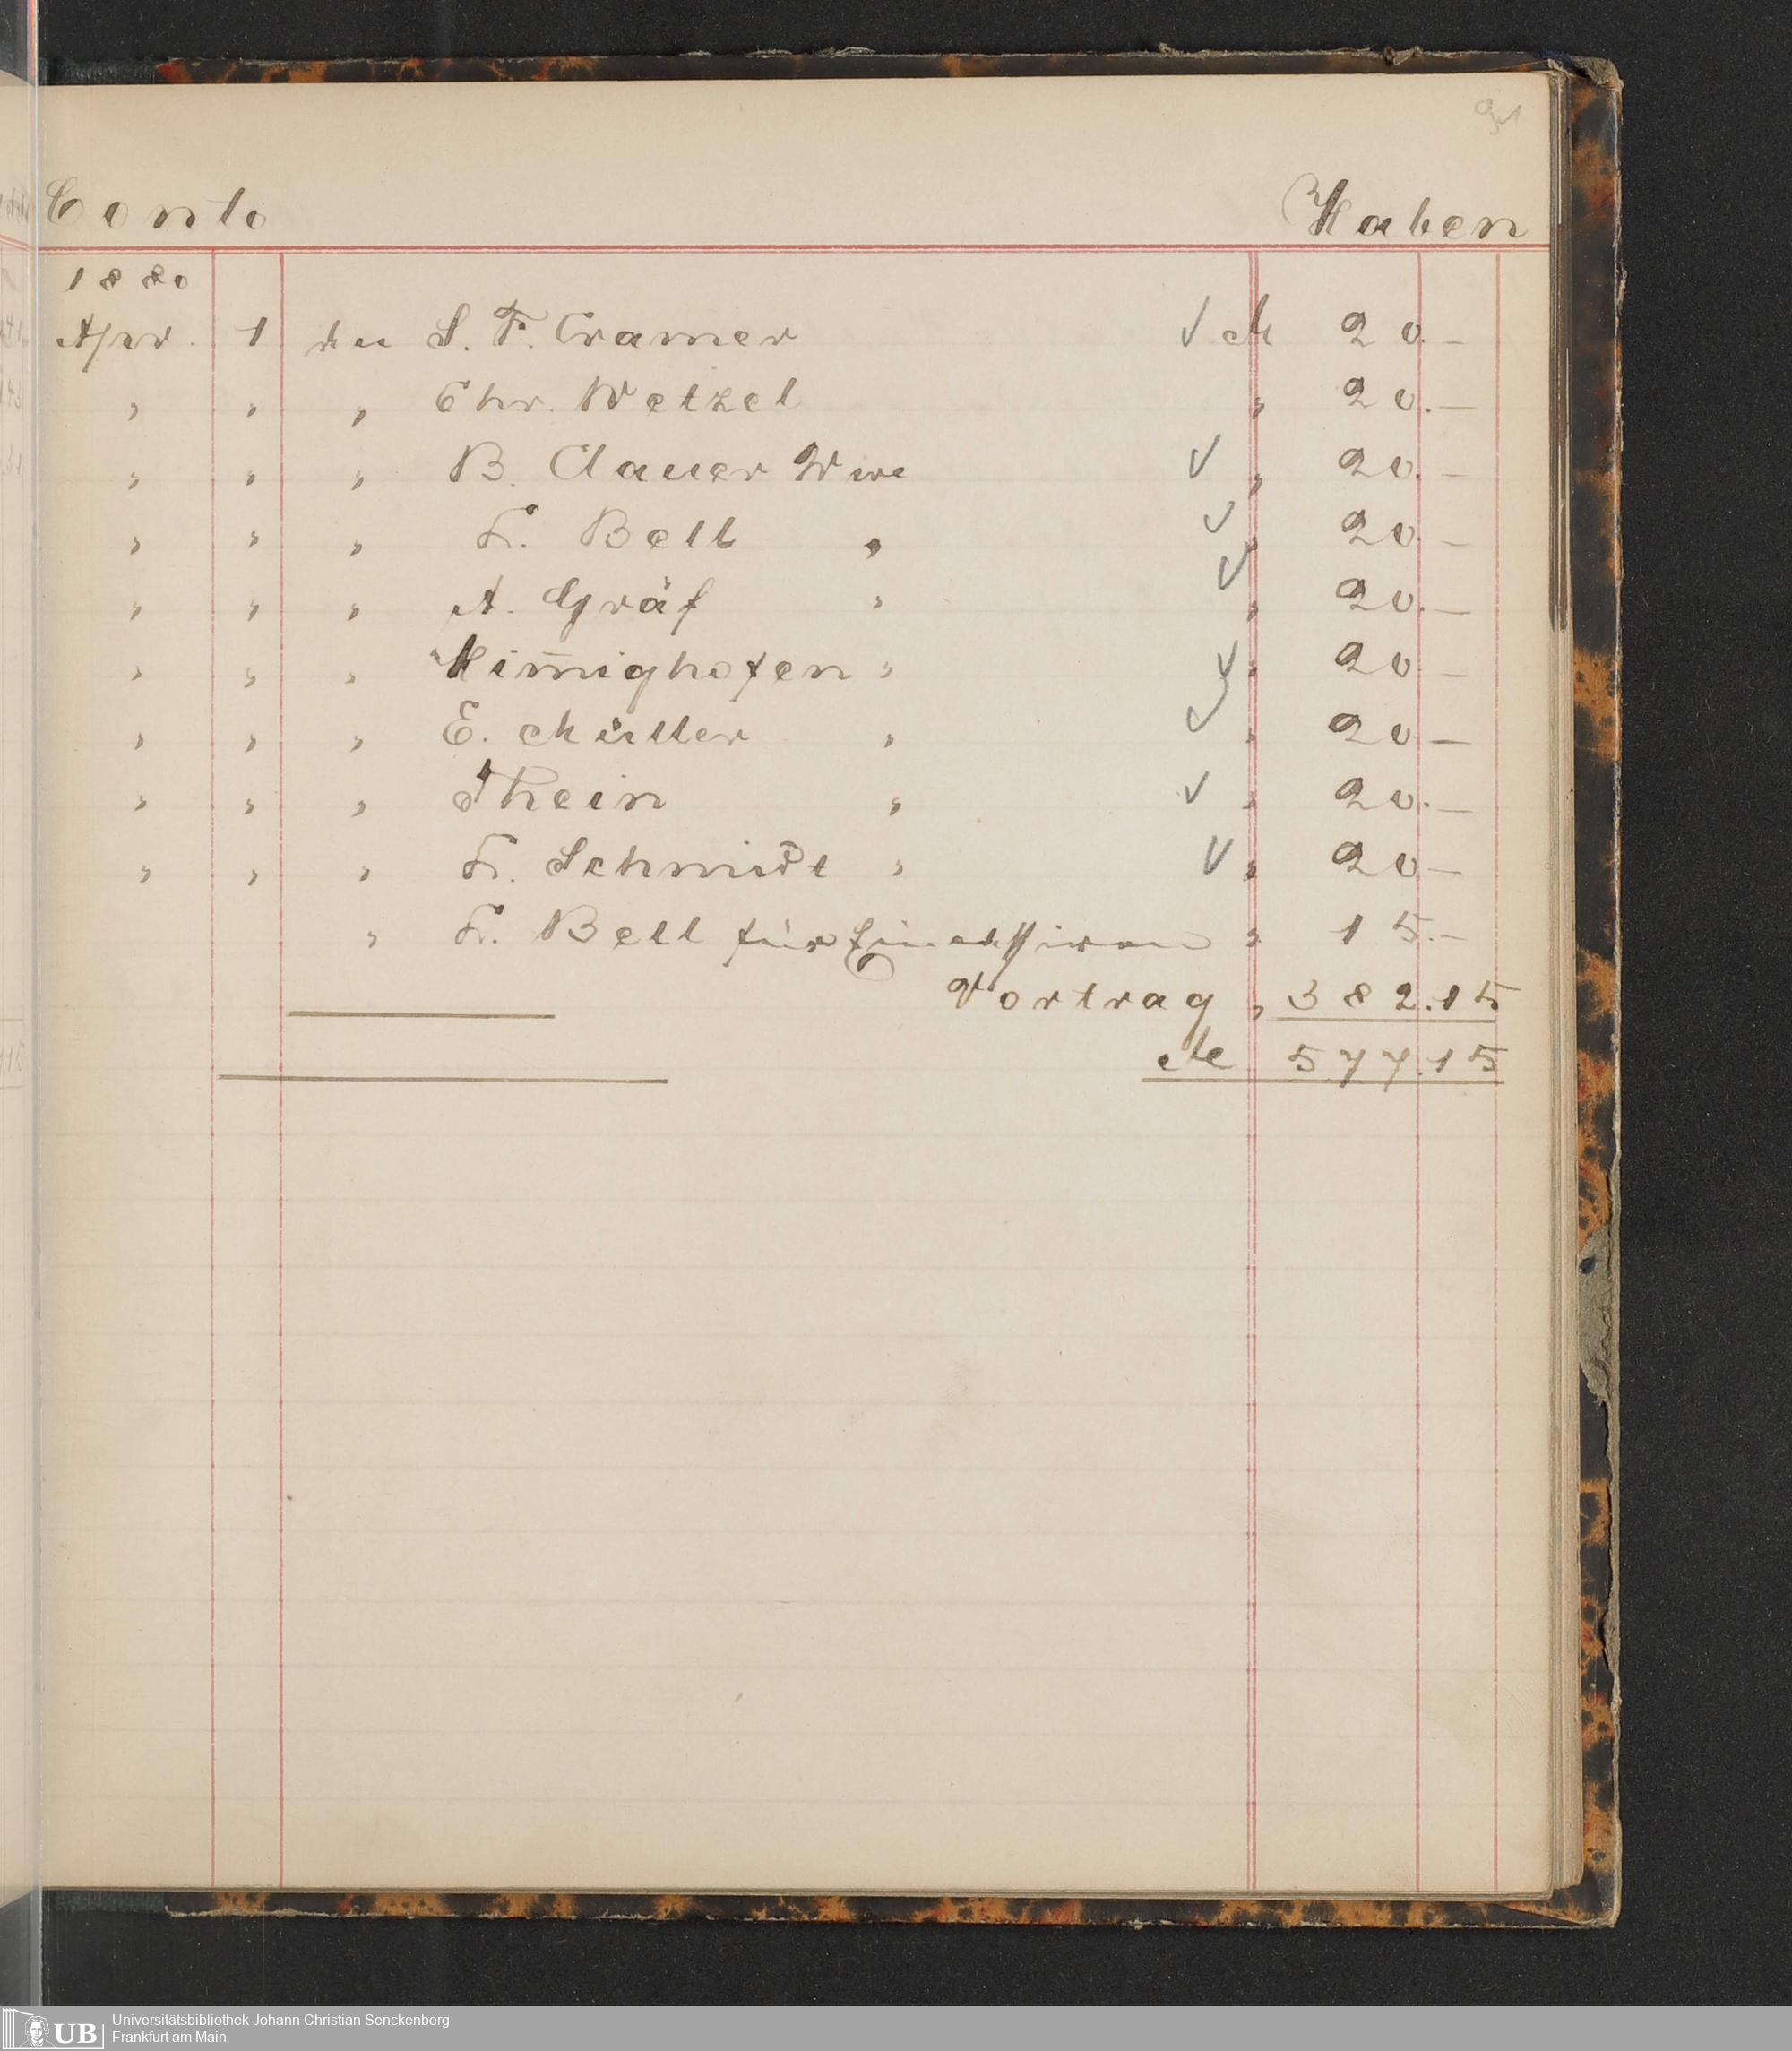 91
Conto Haben
1880
Apr. 1 den S. F. Cramer √ M 20.—
" " " Chr. Wetzel " 20.—
" " " B. Clauer Wwe √ " 20.—
" " " L. Bell " √ " 20.—
" " " A. Gräf " √ " 20.—
" " " Him̄ighofen " √ " 20.—
" " " E. Müller " √ " 20.—
" " " Thein " √ " 20.—
" " " L. Schmidt " √ " 20.—
" L. Bell für " 15.—
Vortrag " 382.15
M 577.15
UB
Universitätsbibliothek Johann Christian Senckenberg
Frankfurt am Main